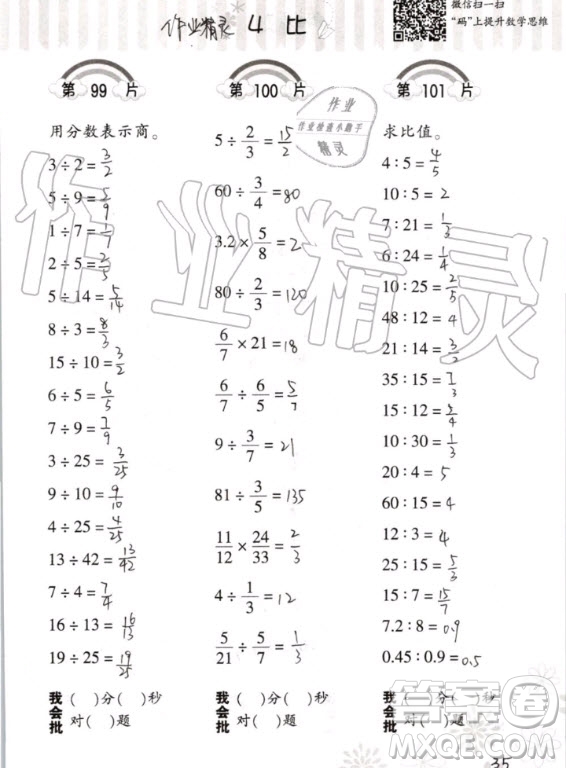 作业精灵 4 比
微信扫一扫
“码”上提升数学思维
第 99 片
用分数表示商。
3÷2=3/2
5÷9=5/9
1÷7=1/7
2÷5=2/5
5÷14=5/14
8÷3=8/3
15÷10=3/2
6÷5=6/5
7÷9=7/9
3÷25=3/25
9÷10=9/10
4÷25=4/25
13÷42=13/42
7÷4=7/4
16÷13=16/13
19÷25=19/25
我会批
( )分( )秒
对( )题
第 100 片
5÷2/3=15/2
60÷3/4=80
3.2×5/8=2
80÷2/3=120
6/7×21=18
6/7÷6/5=5/7
9÷3/7=21
81÷3/5=135
11/12×24/33=2/3
4÷1/3=12
5/21÷5/7=1/3
我会批
( )分( )秒
对( )题
第 101 片
求比值。
4:5=4/5
10:5=2
7:21=1/3
6:24=1/4
10:25=2/5
48:12=4
21:14=3/2
35:15=7/3
15:12=5/4
10:30=1/3
20:4=5
60:15=4
12:3=4
25:15=5/3
15:7=15/7
7.2:8=0.9
0.45:0.9=0.5
我会批
( )分( )秒
对( )题
35
作业
作业检查小助手
精灵
作业精灵
答案圈
MXQE.COM